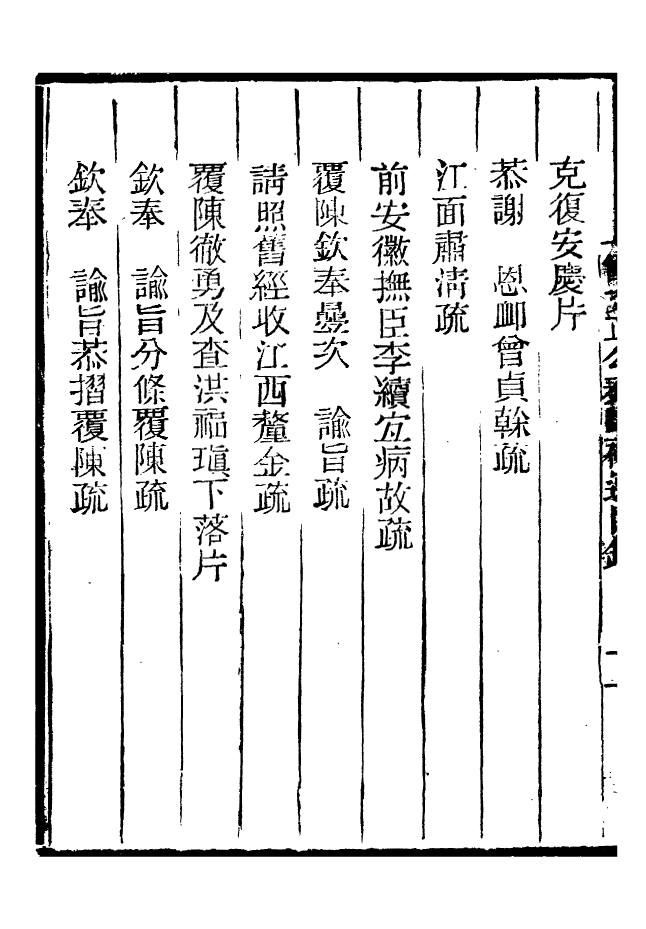 克復安慶片
恭謝　恩卹曾貞榦疏
江面肅清疏
前安徽撫臣李續宜病故疏
覆陳欽奉曡次　諭旨疏
請照舊經收江西釐金疏
覆陳徹勇及查洪福瑱下落片
欽奉　諭旨分條覆陳疏
欽奉　諭旨恭摺覆陳疏